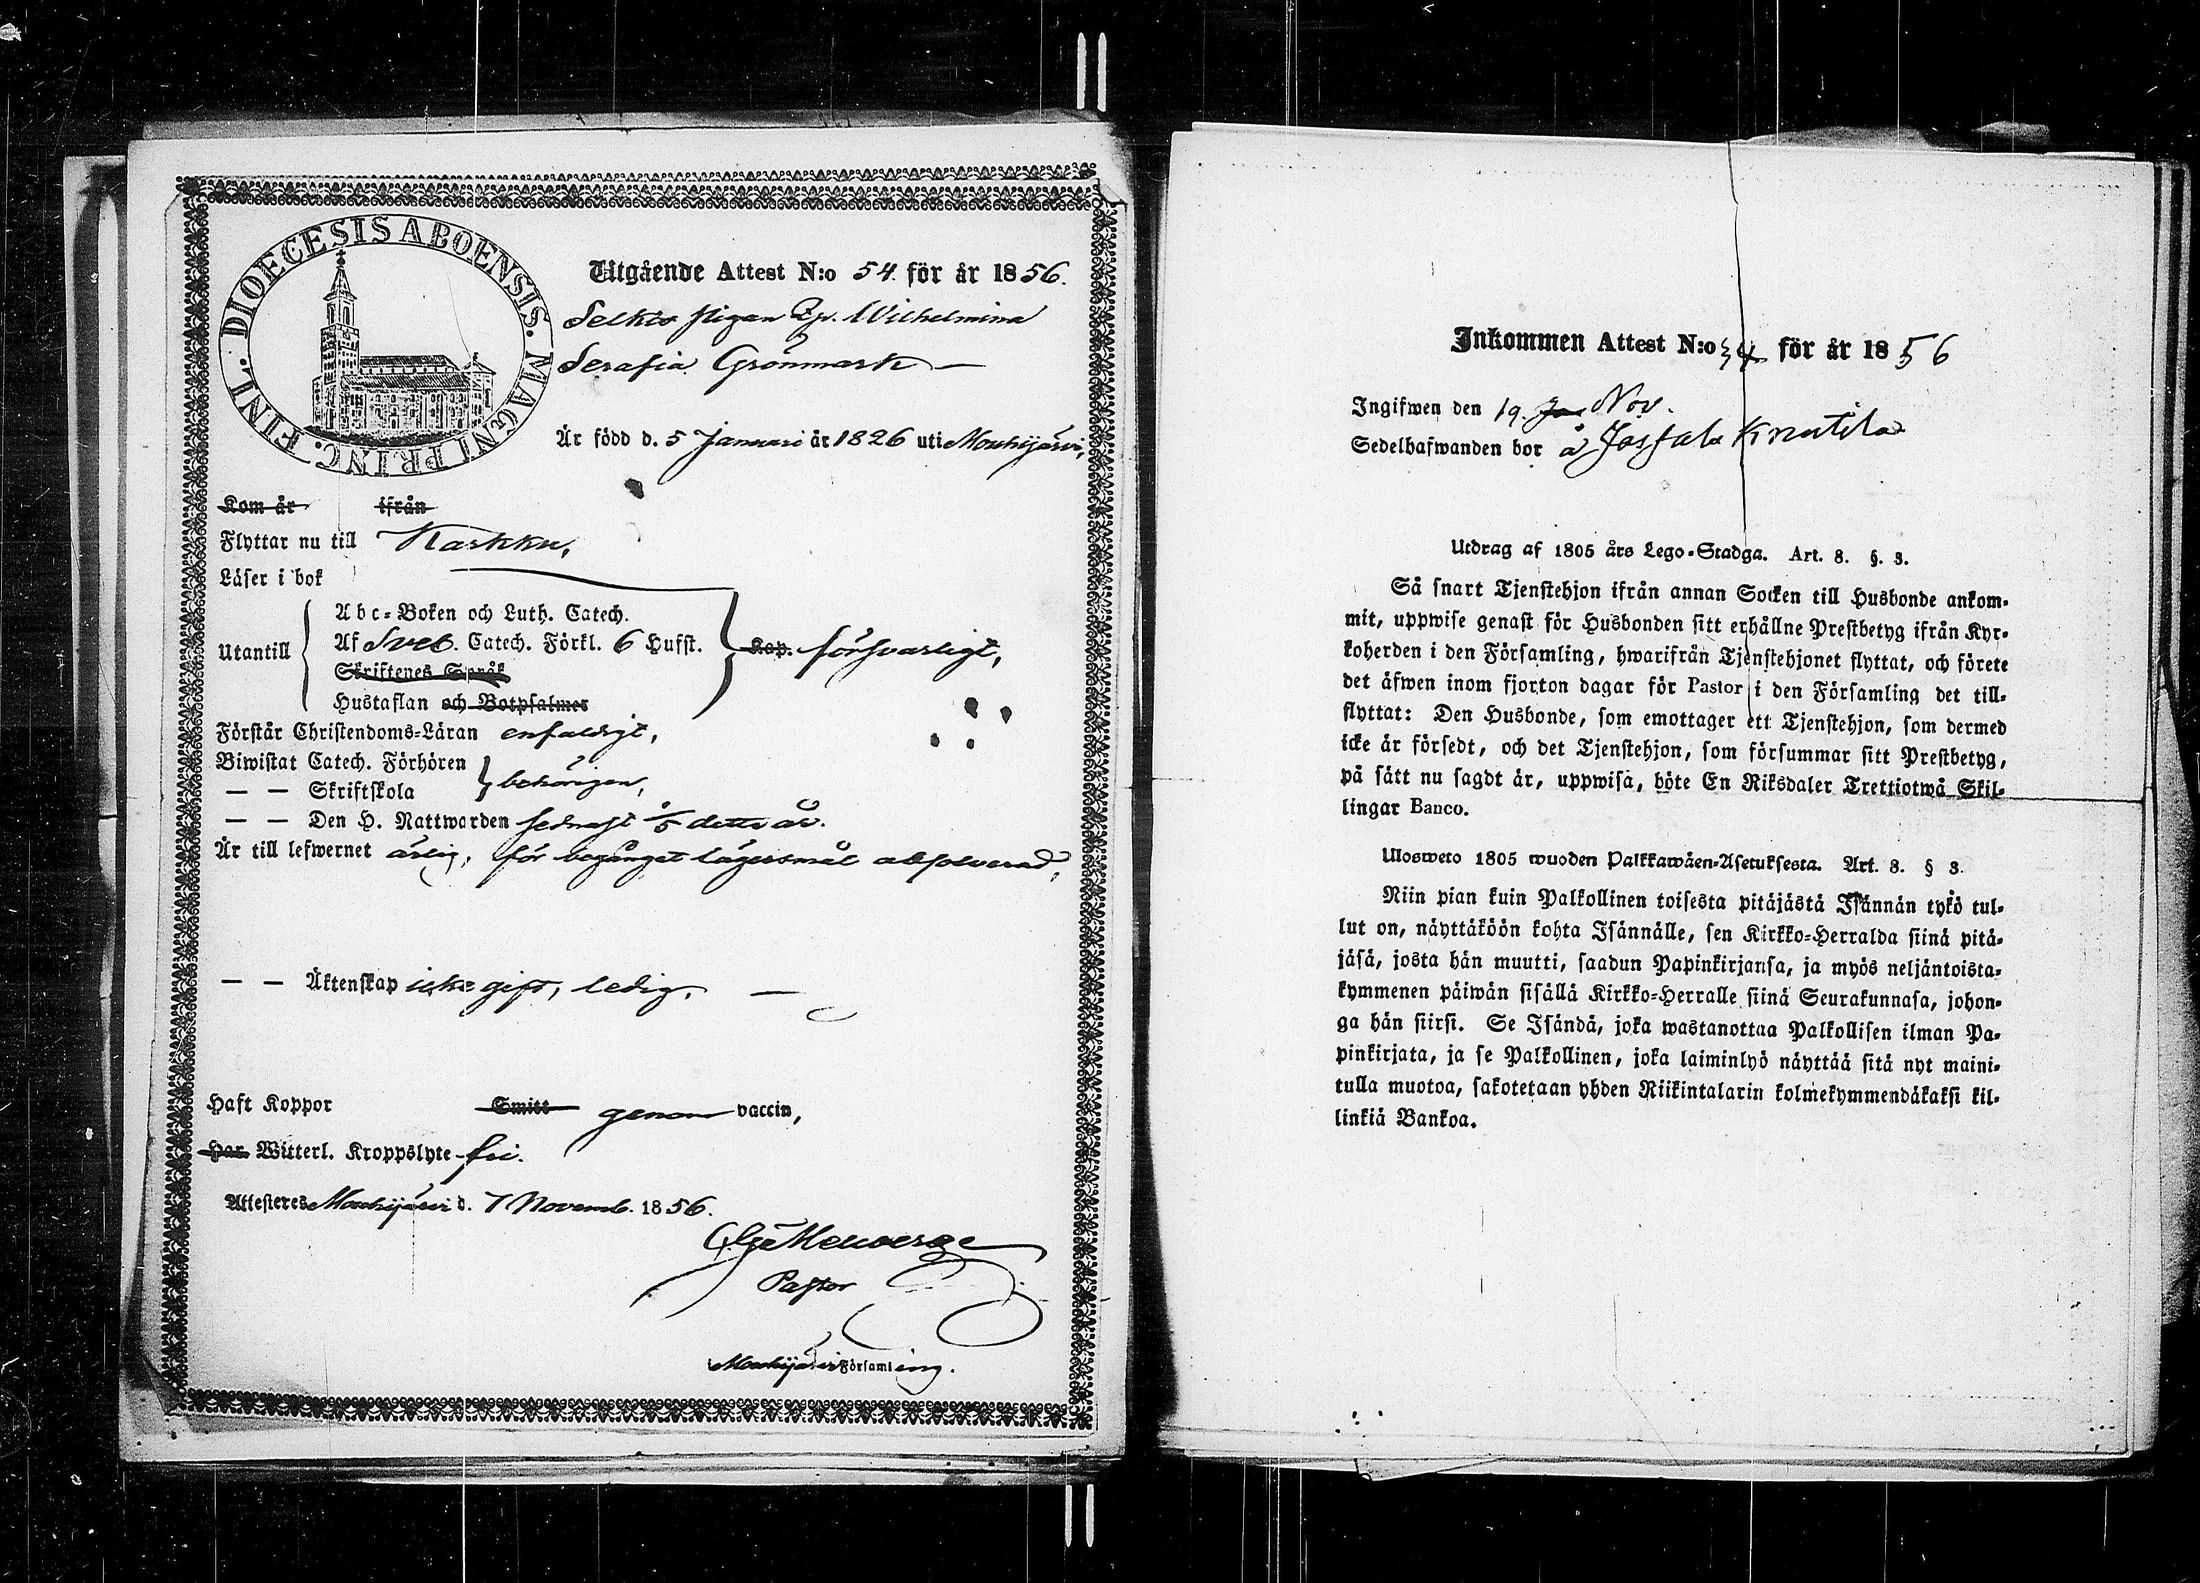 DIOECESIS ABOENSIS. MAGNI PRINC. FINL.
Utgående Attest N:o 54. för år 1856.
Selkis pigan Wilhelmina
Serafia Grönmark —
Är född d. 5 Januari år 1826 uti Mouhijärvi,
Kom år ifrån
Flyttar nu till Karkku,
Läser i bok
Utantill
Abc-Boken och Luth. Catech.
Af Sveb. Catech. Förkl. 6 Hufst. Kap. försvarligt,
Skriftenes Språk
Hustaflan och Botpsalmer
Förstår Christendoms-Läran enfaldigt,
Biwistat Catech. Förhören
— — Skriftskola behörigen,
— — Den H. Nattwarden sednast /5 detta år.
Är till lefwernet ärlig, för begånget lägersmål absolverad,
— — Äktenskap icke gift, ledig. —
Haft Koppor Smitt genom vaccin,
Har Witterl. Kroppslyte fri.
Attesteres Mouhijärvi d. 7 Novemb. 1856.
Pastor
Mouhijärvi Församling.
Inkommen Attest N:o 34 för år 1856
Ingifwen den 19. Nov.
Sedelhafwanden bor å Knutila
Utdrag af 1805 års Lego-Stadga. Art. 8. §. 3.
Så snart Tjenstehjon ifrån annan Socken till Husbonde ankom-
mit, uppwise genast för Husbonden sitt erhållne Prestbetyg ifrån Kyr-
koherden i den Församling, hwarifrån Tjenstehjonet flyttat, och förete
det äfwen inom fjorton dagar för Pastor i den Församling det till-
flyttat: Den Husbonde, som emottager ett Tjenstehjon, som dermed
icke är försedt, och det Tjenstehjon, som försummar sitt Prestbetyg,
på sätt nu sagdt är, uppwisa, böte En Riksdaler Trettiotwå Skil-
lingar Banco.
Ulosweto 1805 wuoden Palkkawäen-Asetuksesta. Art. 8. § 3.
Niin pian kuin Palkollinen toisesta pitäjästä Isännän tykö tul-
lut on, näyttäköön kohta Isännälle, sen Kirkko-Herralda siinä pitä-
jäsä, josta hän muutti, saadun Papinkirjansa, ja myös neljäntoista-
kymmenen päiwän sisällä Kirkko-Herralle siinä Seurakunnasa, johon-
ga hän siirsi. Se Isändä, joka wastanottaa Palkollisen ilman Pa-
pinkirjata, ja se Palkollinen, joka laiminlyö näyttää sitä nyt maini-
tulla muotoa, sakotetaan yhden Riikintalarin kolmekymmendäkaksi kil-
linkiä Bankoa.